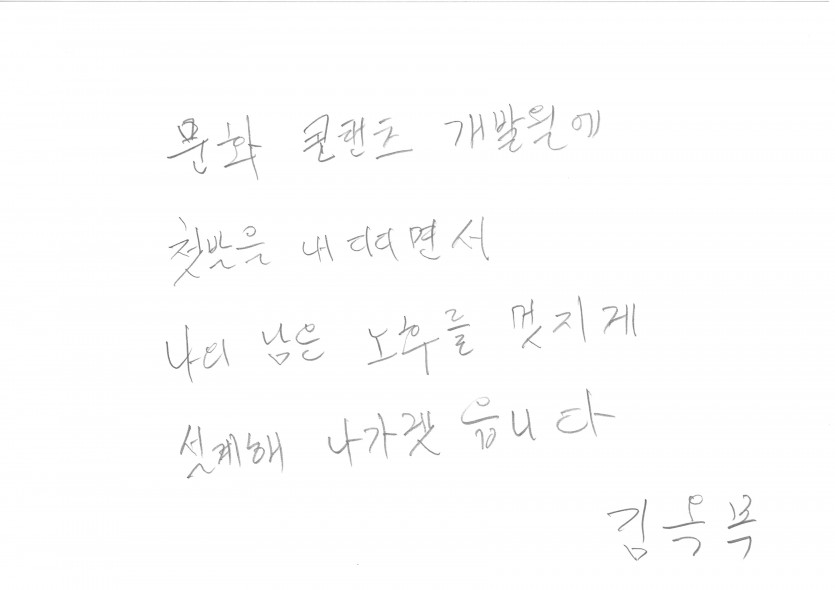 문화 콘텐츠 개발원에
첫발을 내 띠디면서
나의 남은 노후를 멋지게
설계해 나가렛읍니다
김옥목